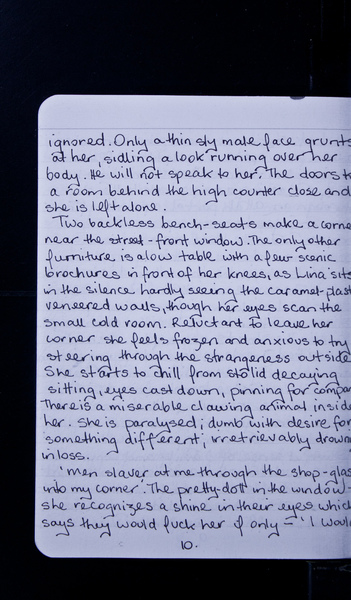 ignored. Only a thin sly male face grunts
at her, sidling a look running over her
body. He will not speak to her. The doors to
a room behind the high counter close and
she is left alone.
Two backless bench-seats make a corne
near the street-front window. The only other
furniture is a low table with a few scenic
brochures in front of her knees, as Lina sits
in the silence hardly seeing the caramel-plast
veneered walls, though her eyes scan the
small cold room. Reluctant to leave her
corner she feels frozen and anxious to try
steering through the strangeness outside.
She starts to chill from stolid decaying
sitting, eyes cast down, pinning for compan
There is a miserable clawing animal inside
her. She is paralysed; dumb with desire for
something different; irretrievably drown
in loss.
'Men slaver at me through the shop-glass
into my corner'. The pretty-doll in the window -
she recognizes a shine in their eyes which
says they would fuck her if only – 'I would
10.